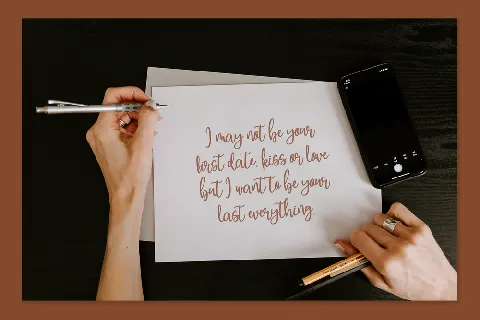 I may not be your
first date, kiss or love
but I want to be your
last everything